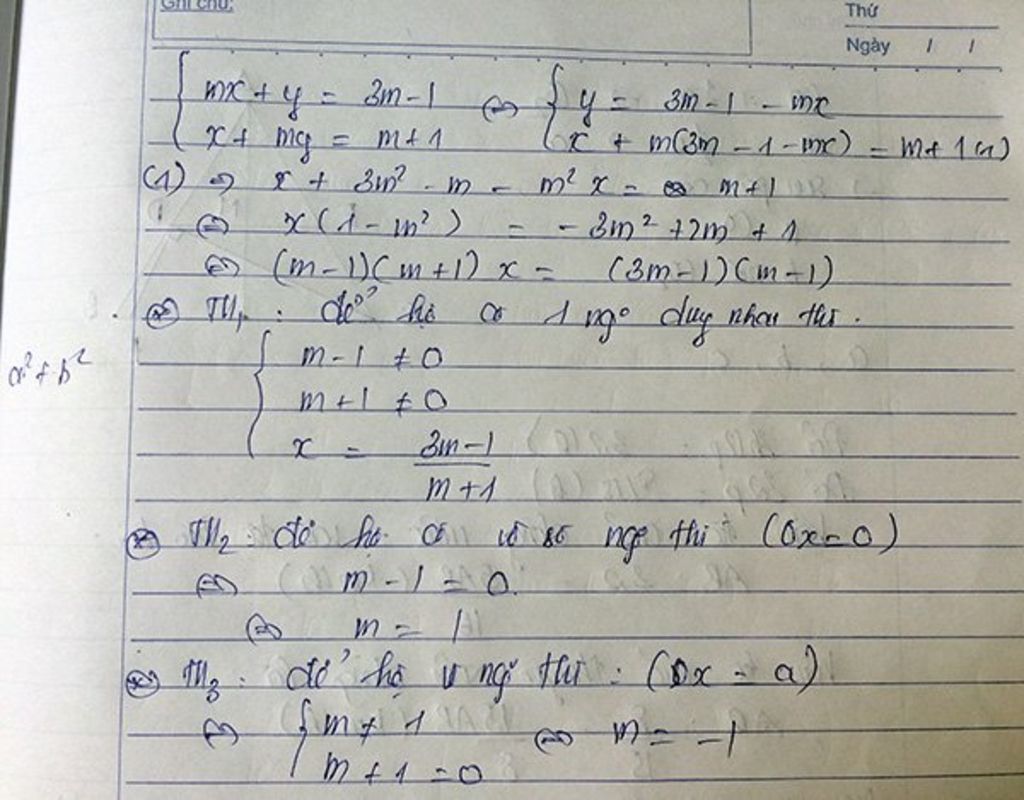 Ghi chú:
Thứ
Ngày / /
{ mx + y = 3m - 1 ⇔ { y = 3m - 1 - mx
x + my = m + 1 x + m(3m - 1 - mx) = m + 1 (1)
(1) ⇒ x + 3m² - m - m² x = m + 1
⇔ x(1 - m²) = - 3m² + 2m + 1
⇔ (m - 1)(m + 1) x = (3m - 1)(m - 1)
* TH1 : để hệ có 1 ngo duy nhất thì .
{ m - 1 ≠ 0
a² + b²
m + 1 ≠ 0
x = 3m - 1
m + 1
* TH2 : để hệ có vô số ngo thì (0x = 0)
⇔ m - 1 = 0.
⇔ m = 1
* TH3 : để hệ v ngo thì : (0x = a)
⇔ { m ≠ 1 ⇔ m = -1
m + 1 = 0